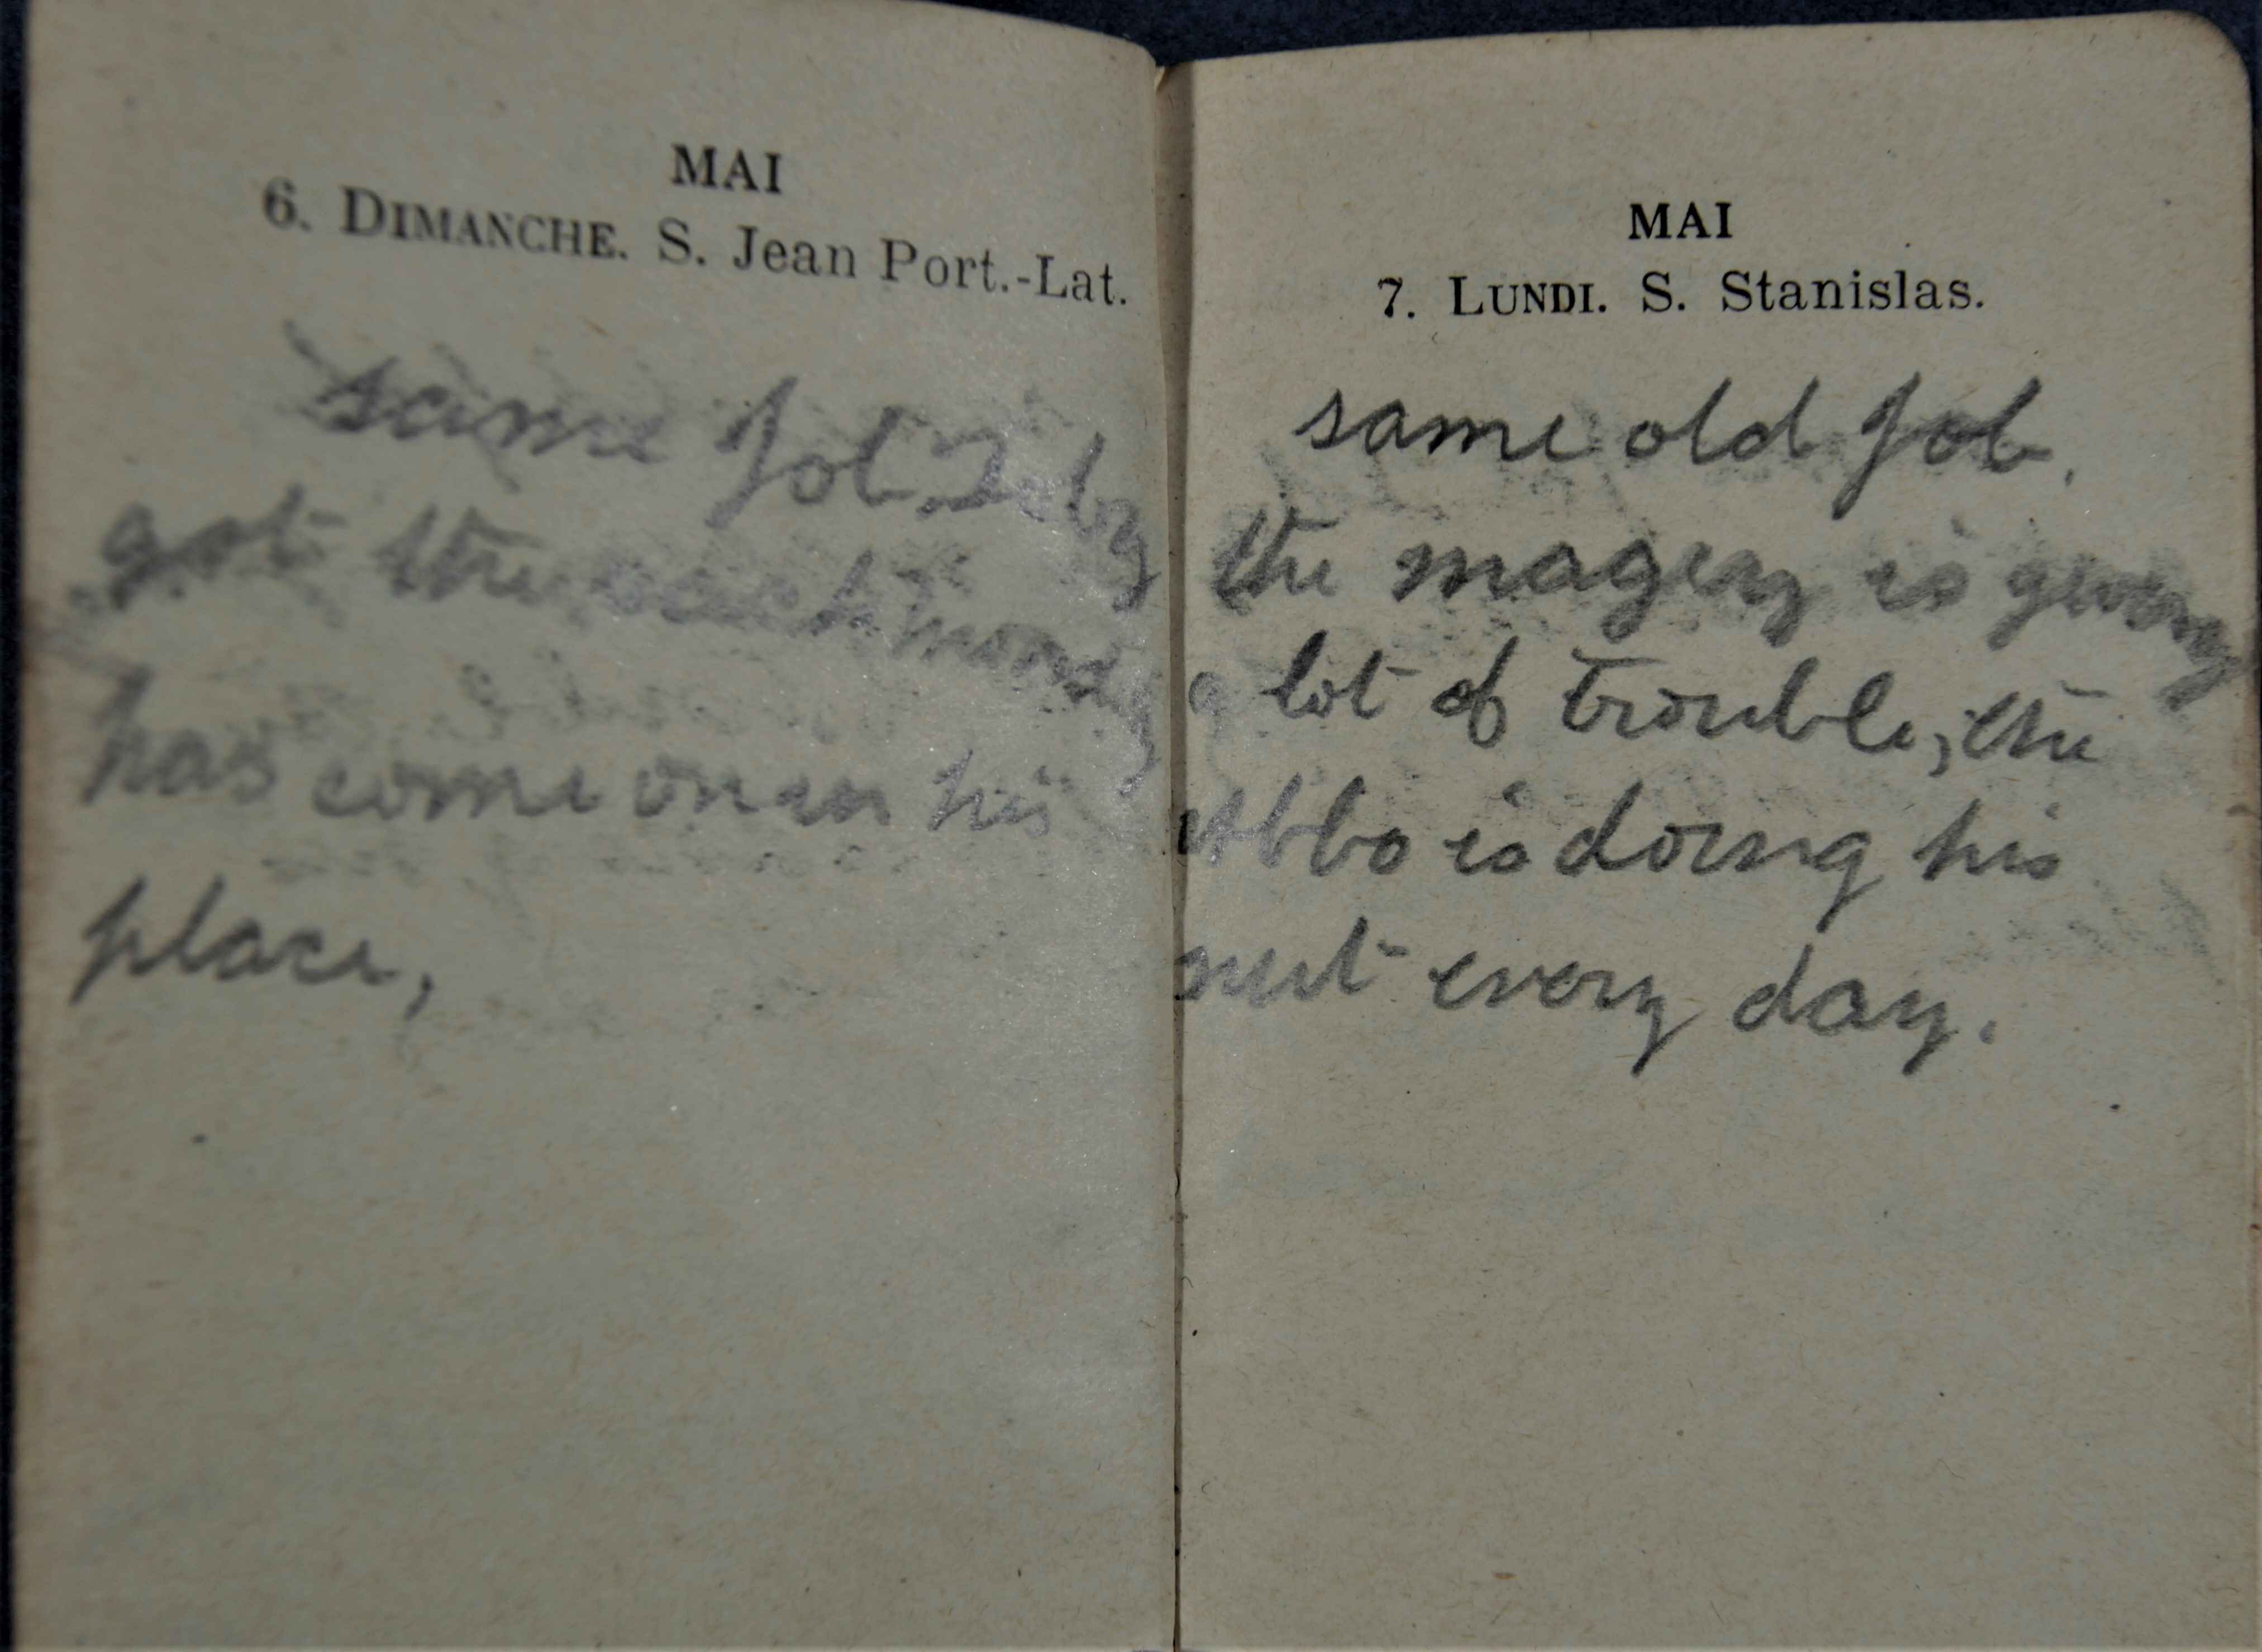 MAI
6. DIMANCHE. S. Jean Port.-Lat.
same Job, Toby
got the sack
has come on in his
place,
MAI
7. LUNDI. S. Stanislas.
same old Job.
the is giving
a lot of trouble, the
is doing his
nut every day.